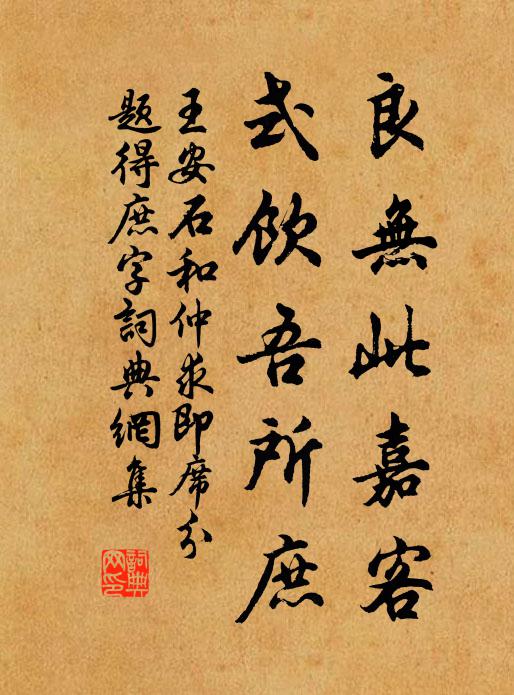 良無此嘉客
式飲吾所庶
王安石和仲求即席分
題得庶字詞典網集
詞典
网印